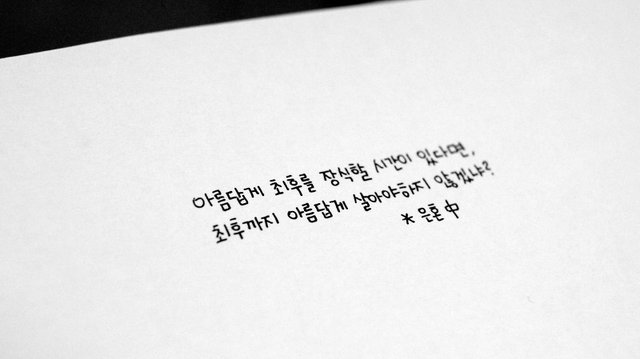 아름답게 최후를 장식할 시간이 있다면,
최후까지 아름답게 살아야하지 않겠냐?
* 은혼 中